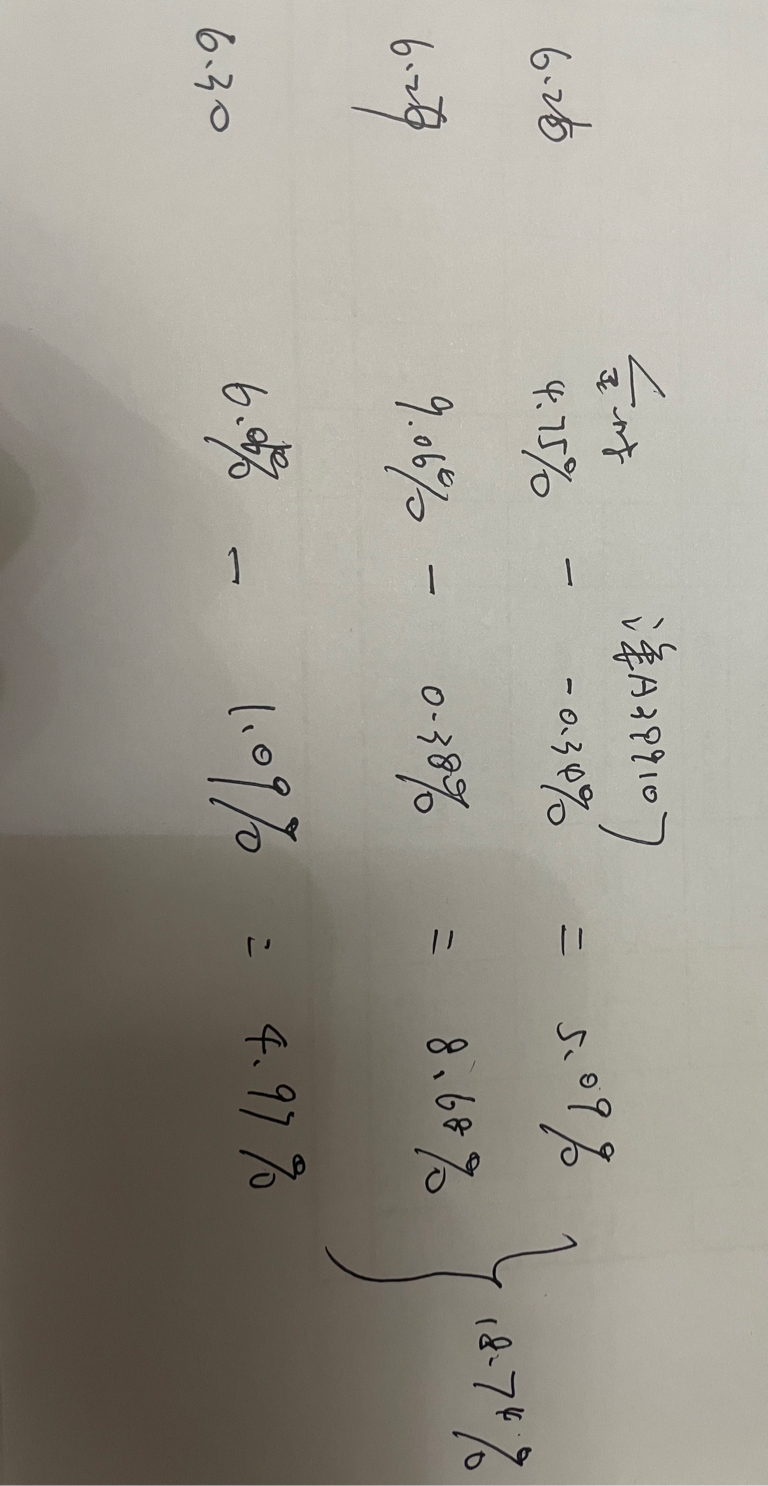 4.75% - -0.34% = 5.09%
9.06% - 0.38% = 8.68%
18.74%
6.30 6.06% - 1.09% = 4.97%